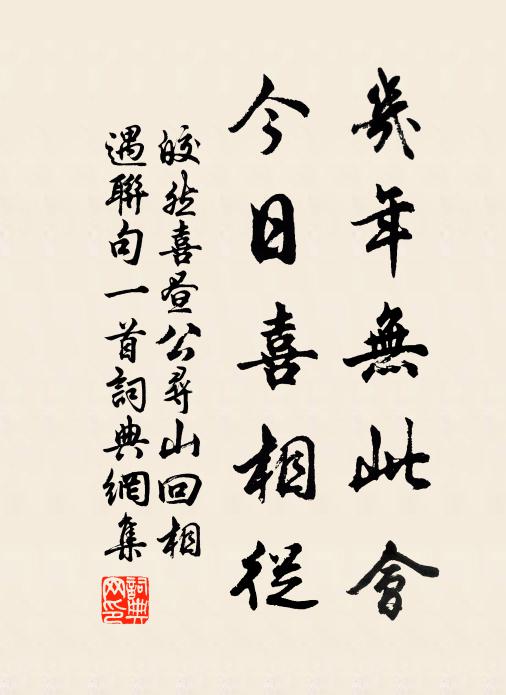 幾年無此會
今日喜相從
皎然喜晝公尋山回相
遇聯句一首詞典網集
詞典
网印